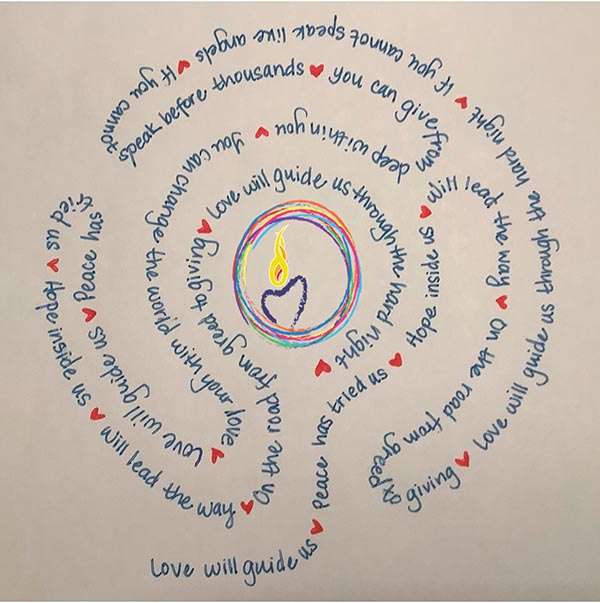 Love will guide us ♥
Peace has tried us ♥
Hope inside us ♥
Will lead the way ♥
On the road from greed to giving ♥
Love will guide us through the hard night ♥
If you cannot speak like angels ♥
If you cannot speak before thousands ♥
You can give from deep within you ♥
You can change the world with your love ♥
Love will guide us ♥
Peace has tried us ♥
Hope inside us ♥
Will lead the way ♥
On the road from greed to giving ♥
Love will guide us through the hard night ♥